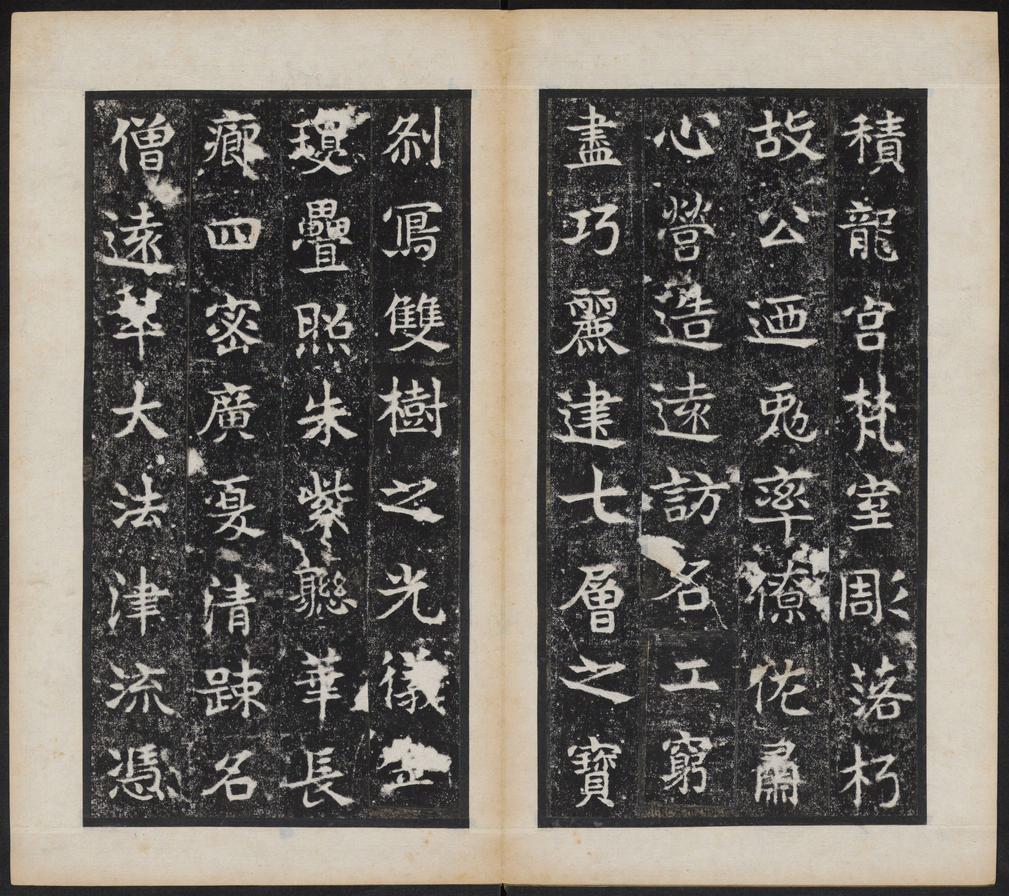 積龍宮梵室彫落朽
故公迺兎率僚佐肅
心營造遠訪名工窮
盡巧麗建七層之寶
刹寫雙樹之光儀
疊照朱紫聯華長
四密廣夏清踈名
僧遠萃大法津流憑